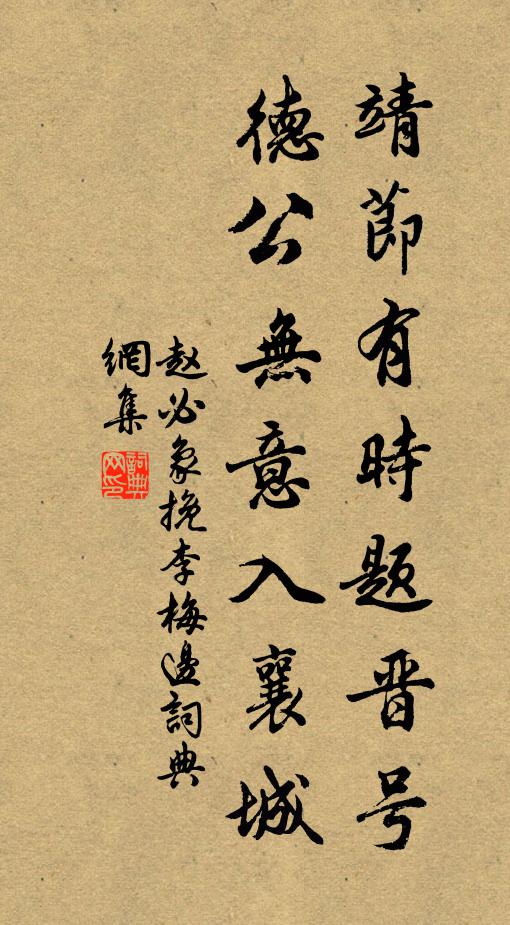 靖節有時題晋号
德公無意入襄城
赵必象挽李梅邊詞典
網集
詞典网印